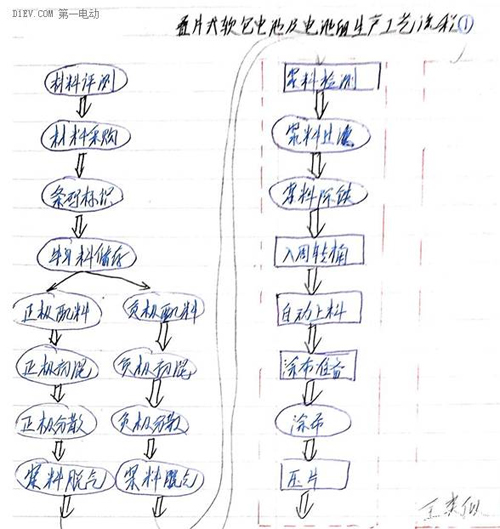 D1EV.COM 第一电动
叠片式软包电池及电池组生产工艺流程①
材料评测
材料采购
条码标识
材料储存
正极配料
负极配料
正极初混
负极初混
正极分散
负极分散
浆料脱气
浆料脱气
浆料检测
浆料过滤
浆料除铁
入周转桶
自动上料
涂布准备
涂布
压片